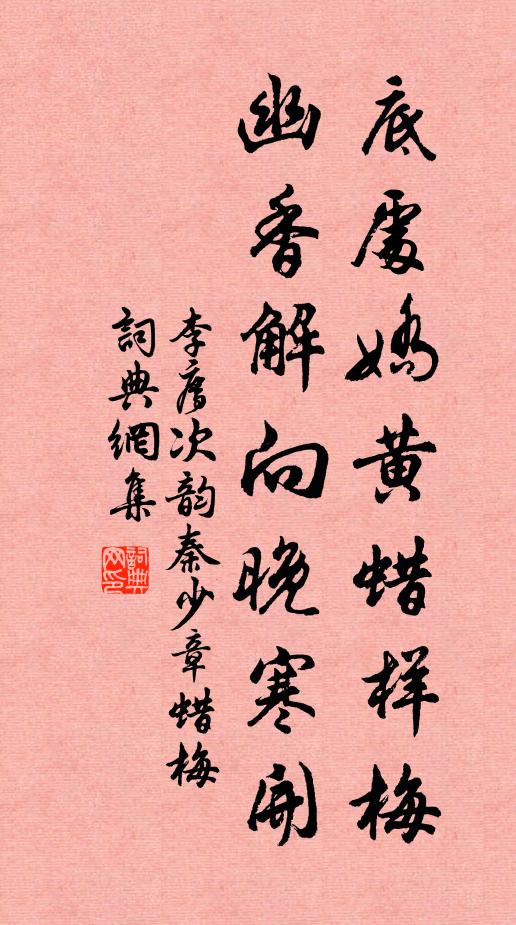 底處嬌黄蜡样梅
幽香解向晚寒開
李廌次韵秦少章蜡梅
詞典網集
詞典网印